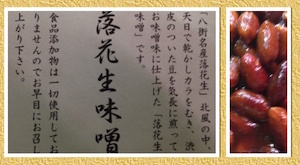 「八街名産落花生」北風の中、
天日で乾かしカラをむき、渋
皮のついた豆を気長に煎って
お味噌味に仕上げた「落花生
味噌」です。
落花生味噌
食品添加物は一切使用してお
りませんのでお早目にお召し
上がり下さい。